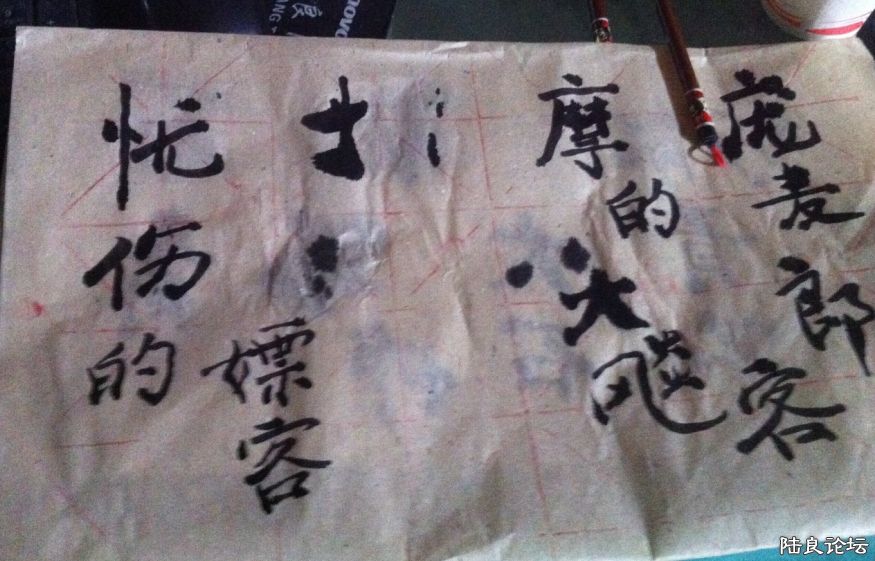 庞麦郎
摩的大飚客
忧伤的
嫖客
陆良论坛